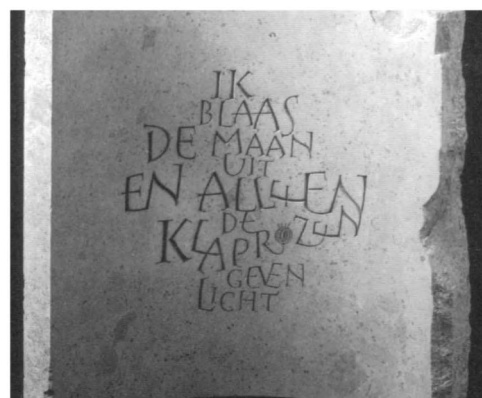 IK
BLAAS
DE MAAN
UIT
EN ALLEEN
DE
KLAPROZEN
GEVEN
LICHT